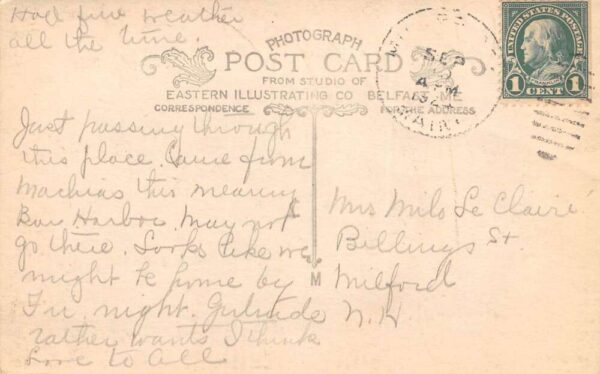 Had fine weather
all the time.
PHOTOGRAPH
POST CARD
FROM STUDIO OF
EASTERN ILLUSTRATING CO. BELFAST, ME.
CORRESPONDENCE
FOR THE ADDRESS
SEP
UNITED STATES POSTAGE
FRANKLIN
1 CENT 1
Just passing through
this place. Came from
Machias this morning
Bar Harbor. May not
go there. Looks like we
might be home by
Fri. night. Gertrude
rather wants I think
Love to All
Mrs Milo Le Claire
Billings St.
Milford
N.H
M